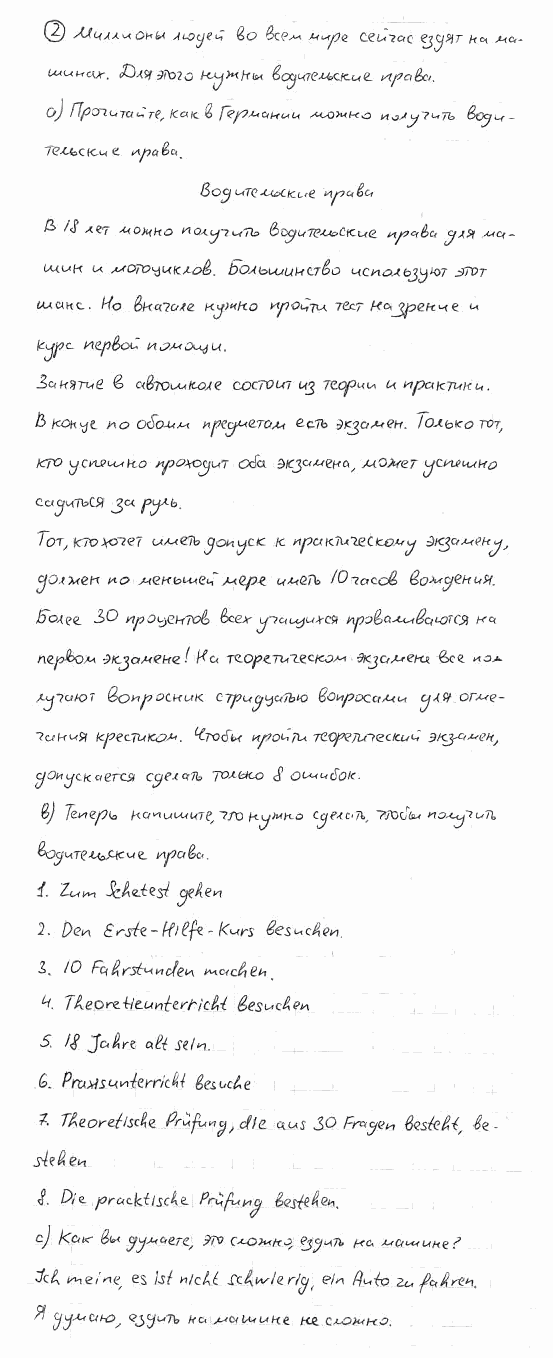 ② Миллионы людей во всем мире сейчас ездят на ма-
шинах. Для этого нужны водительские права.
а) Прочитайте, как в Германии можно получить води-
тельские права.
Водительские права
В 18 лет можно получить водительские права для ма-
шин и мотоциклов. Большинство используют этот
шанс. Но вначале нужно пройти тест на зрение и
курс первой помощи.
Занятие в автошколе состоит из теории и практики.
В конце по обоим предметам есть экзамен. Только тот,
кто успешно проходит оба экзамена, может успешно
садиться за руль.
Тот, кто хочет иметь допуск к практическому экзамену,
должен по меньшей мере иметь 10 часов вождения.
Более 30 процентов всех учащихся проваливаются на
первом экзамене! На теоретическом экзамене все по-
лучают вопросник с тридцатью вопросами для отме-
чания крестиком. Чтобы пройти теоретический экзамен,
допускается сделать только 8 ошибок.
в) Теперь напишите, что нужно сделать, чтобы получить
водительские права.
1. Zum Sehetest gehen
2. Den Erste-Hilfe-Kurs besuchen.
3. 10 Fahrstunden machen.
4. Theoretieunterricht besuchen
5. 18 Jahre alt sein.
6. Praxisunterricht besuche
7. Theoretische Prüfung, die aus 30 Fragen besteht, be-
stehen
8. Die pracktische Prüfung bestehen.
с) Как вы думаете, это сложно, ездить на машине?
Ich meine, es ist nicht schwierig, ein Auto zu fahren.
Я думаю, ездить на машине не сложно.